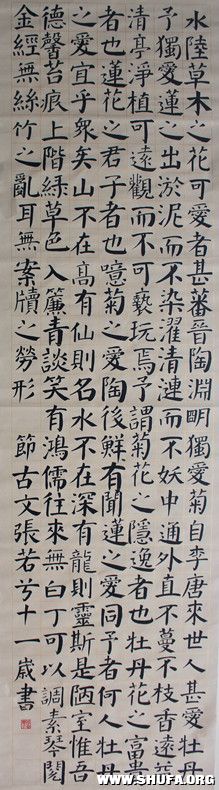 水陸草木之花可愛者甚蕃晉陶淵明獨愛菊自李唐來世人甚愛牡丹
予獨愛蓮之出淤泥而不染濯清漣而不妖中通外直不蔓不枝香遠益
清亭淨植可遠觀而不可褻玩焉予謂菊花之隱逸者也牡丹花之富貴
者也蓮花之君子者也噫菊之愛陶後鮮有聞蓮之愛同予者何人牡丹
之愛宜乎眾矣山不在高有仙則名水不在深有龍則靈斯是陋室惟吾
德馨苔痕上階綠草色入簾青談笑有鴻儒往來無白丁可以調素琴閱
金經無絲竹之亂耳無案牘之勞形 節古文張若兮十一歲書
WWW.SHUFA.ORG